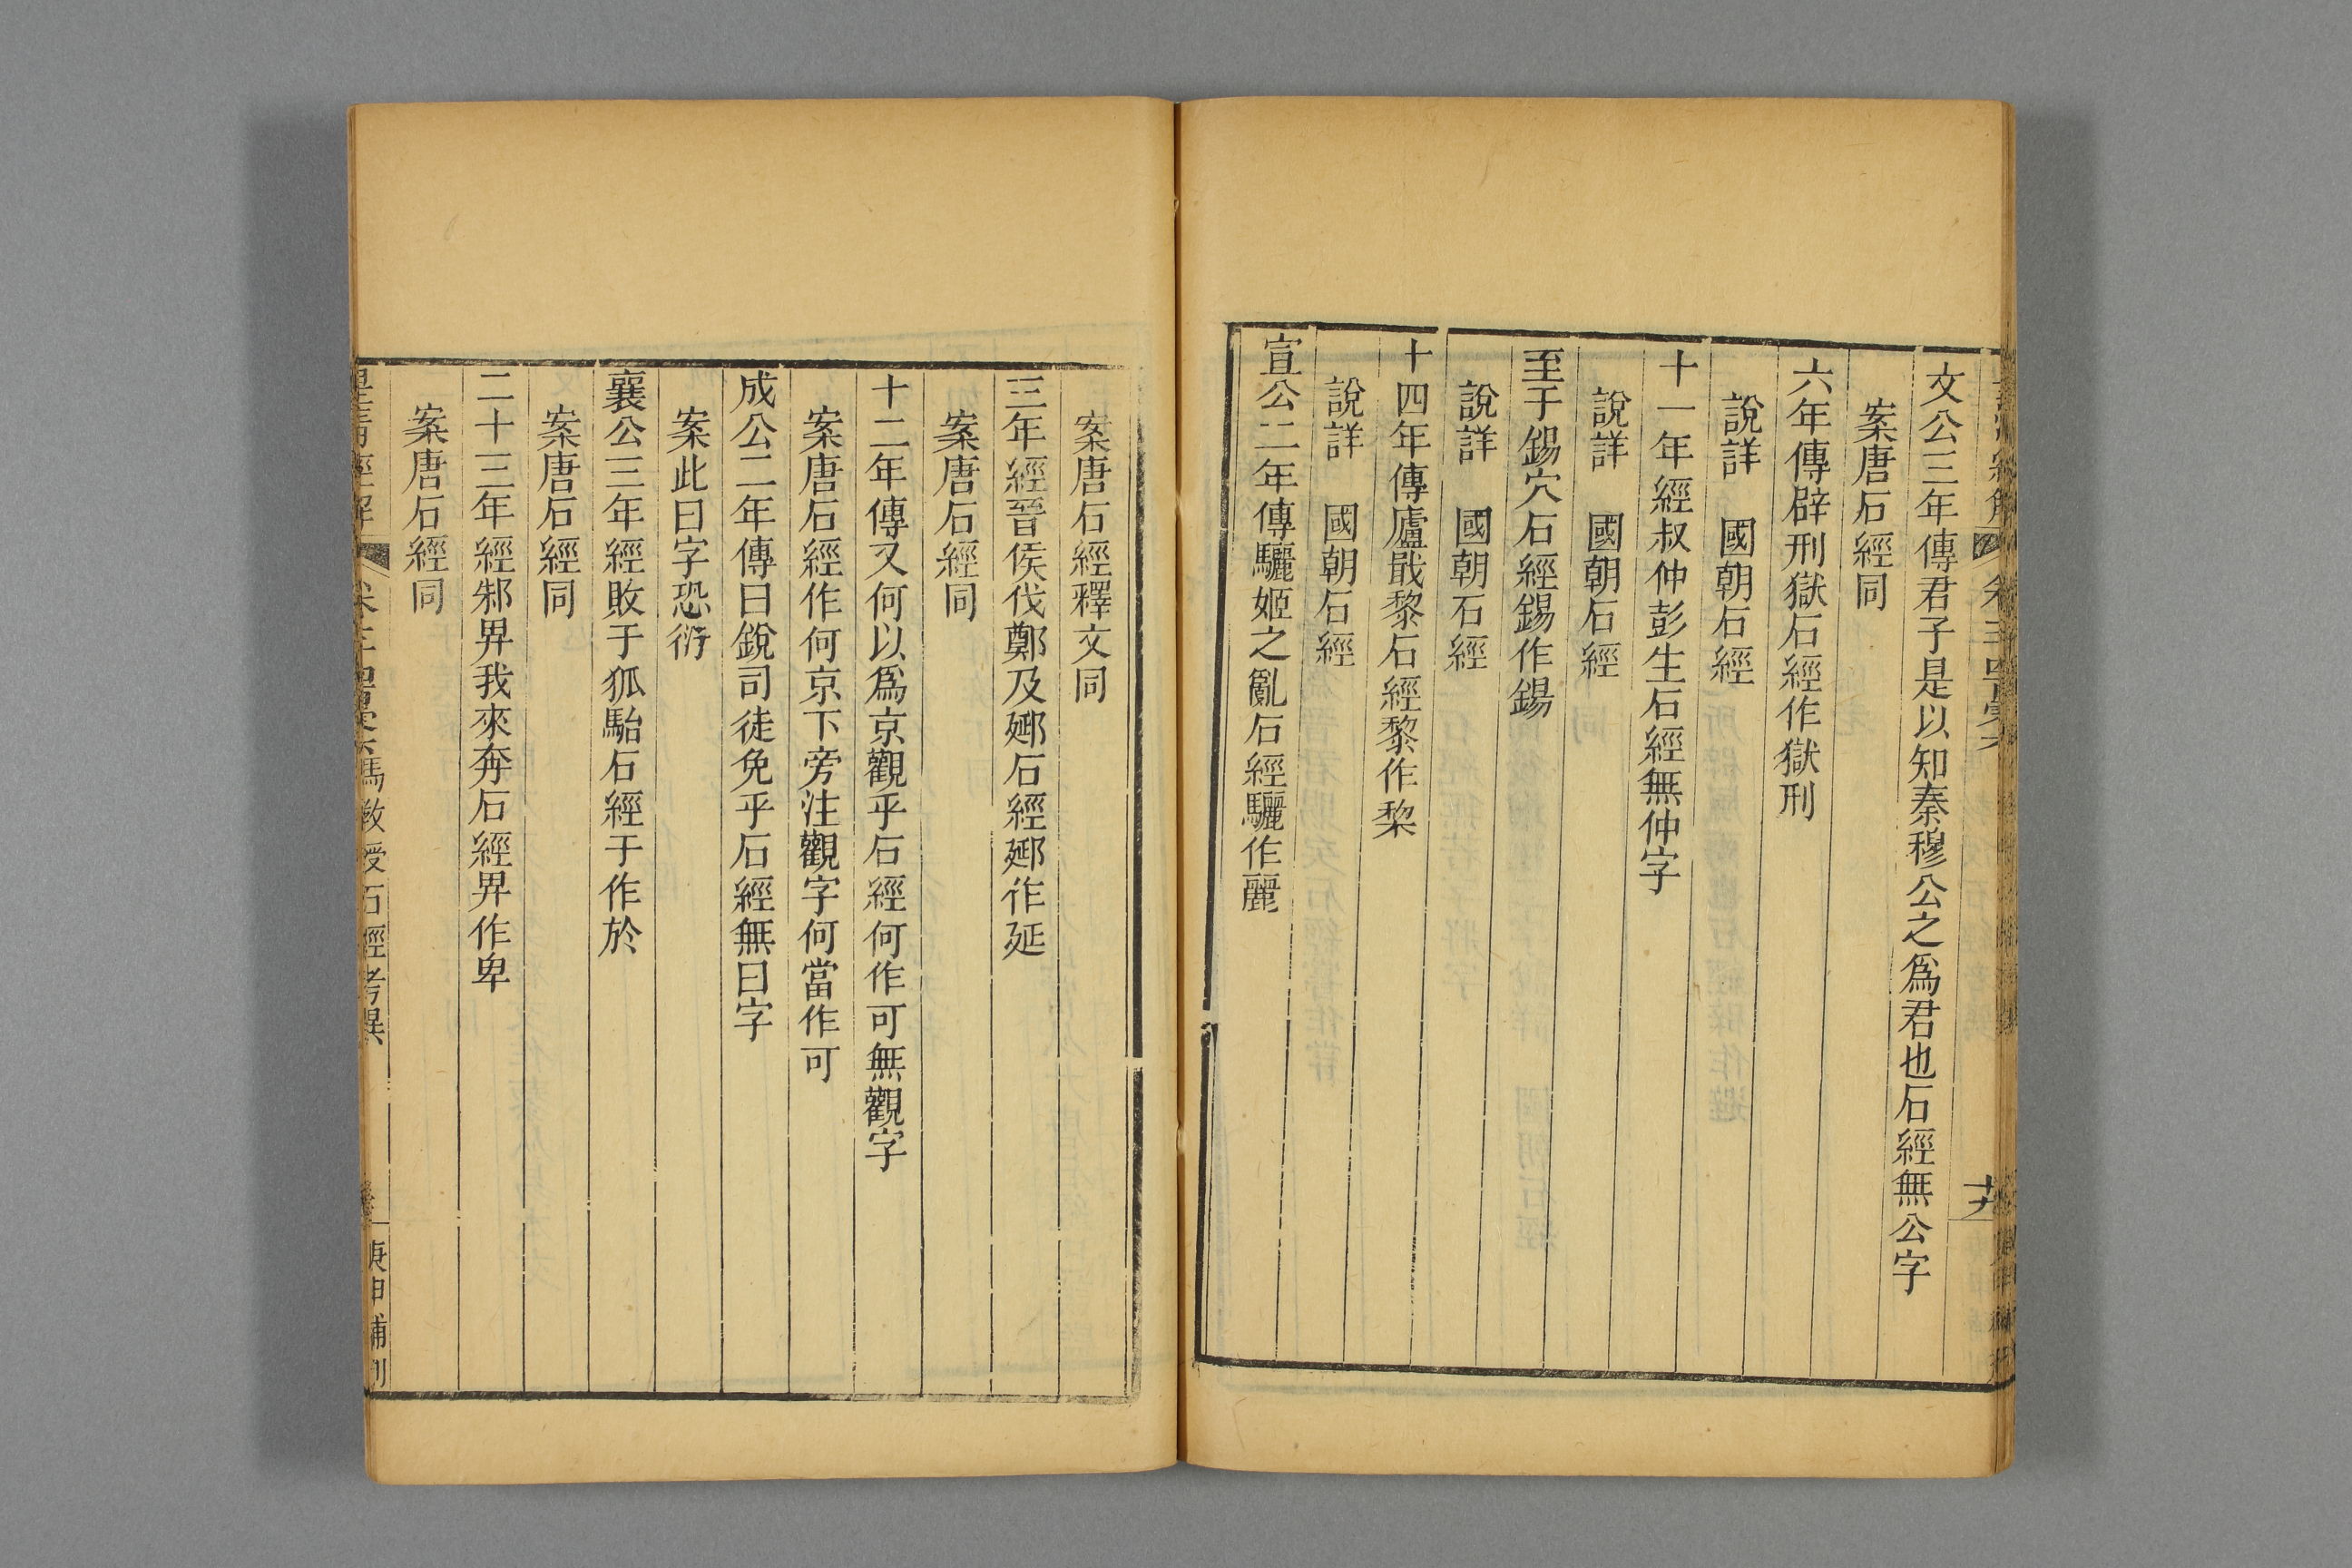 文公三年傳君子是以知秦穆公之爲君也石經無公字
案唐石經同
六年傳辟刑獄石經作獄刑
說詳　國朝石經
十一年經叔仲彭生石經無仲字
說詳　國朝石經
至于錫穴石經錫作鍚
說詳　國朝石經
十四年傳廬戢黎石經黎作棃
說詳　國朝石經
宣公二年傳驪姬之亂石經驪作麗
案唐石經釋文同
三年經晉侯伐鄭及郔石經郔作延
案唐石經同
十二年傳又何以爲京觀乎石經何作可無觀字
案唐石經作何京下旁注觀字何當作可
成公二年傳曰銳司徒免乎石經無曰字
案此曰字恐衍
襄公三年經敗于狐駘石經于作於
案唐石經同
二十三年經邾畀我來奔石經畀作卑
案唐石經同
皇清經解
馮教授石經考異
庚申補刊